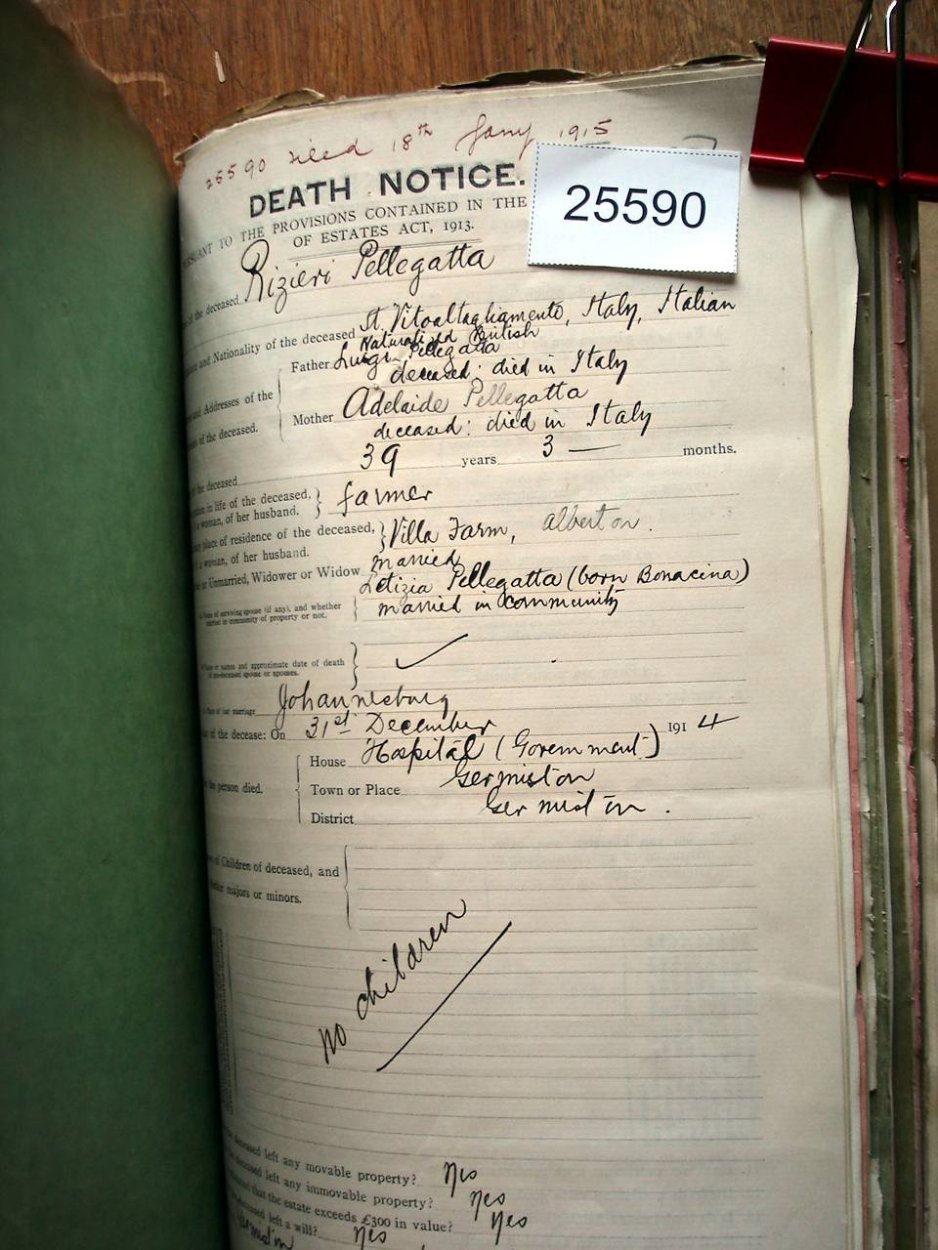 25590 filed 18th Jany 1915
DEATH NOTICE.
25590
TO THE PROVISIONS CONTAINED IN THE
OF ESTATES ACT, 1913.
of the deceased Rizieri Pellegatta
and Nationality of the deceased St. Vitoaltagliamento, Italy, Italian
Naturalized British
Father Luigi Pellegatta
deceased: died in Italy
Addresses of the
of the deceased.
Mother Adelaide Pellegatta
deceased: died in Italy
of the deceased 39 years 3 — months.
in life of the deceased,
a woman, of her husband.
farmer
place of residence of the deceased,
a woman, of her husband.
Villa Farm, Alberton.
or Unmarried, Widower or Widow married
Letizia Pellegatta (born Bonacina)
of surviving spouse (if any), and whether
married in community of property or not.
married in community
or names and approximate date of death
spouse or spouses.
Place of last marriage Johannesburg
of the decease: On 31st December 1914
House Hospital (Government)
person died.
Town or Place Germiston
District Germiston.
of Children of deceased, and
majors or minors.
no children
deceased left any movable property? Yes
deceased left any immovable property? Yes
that the estate exceeds £300 in value? Yes
deceased left a will? Yes